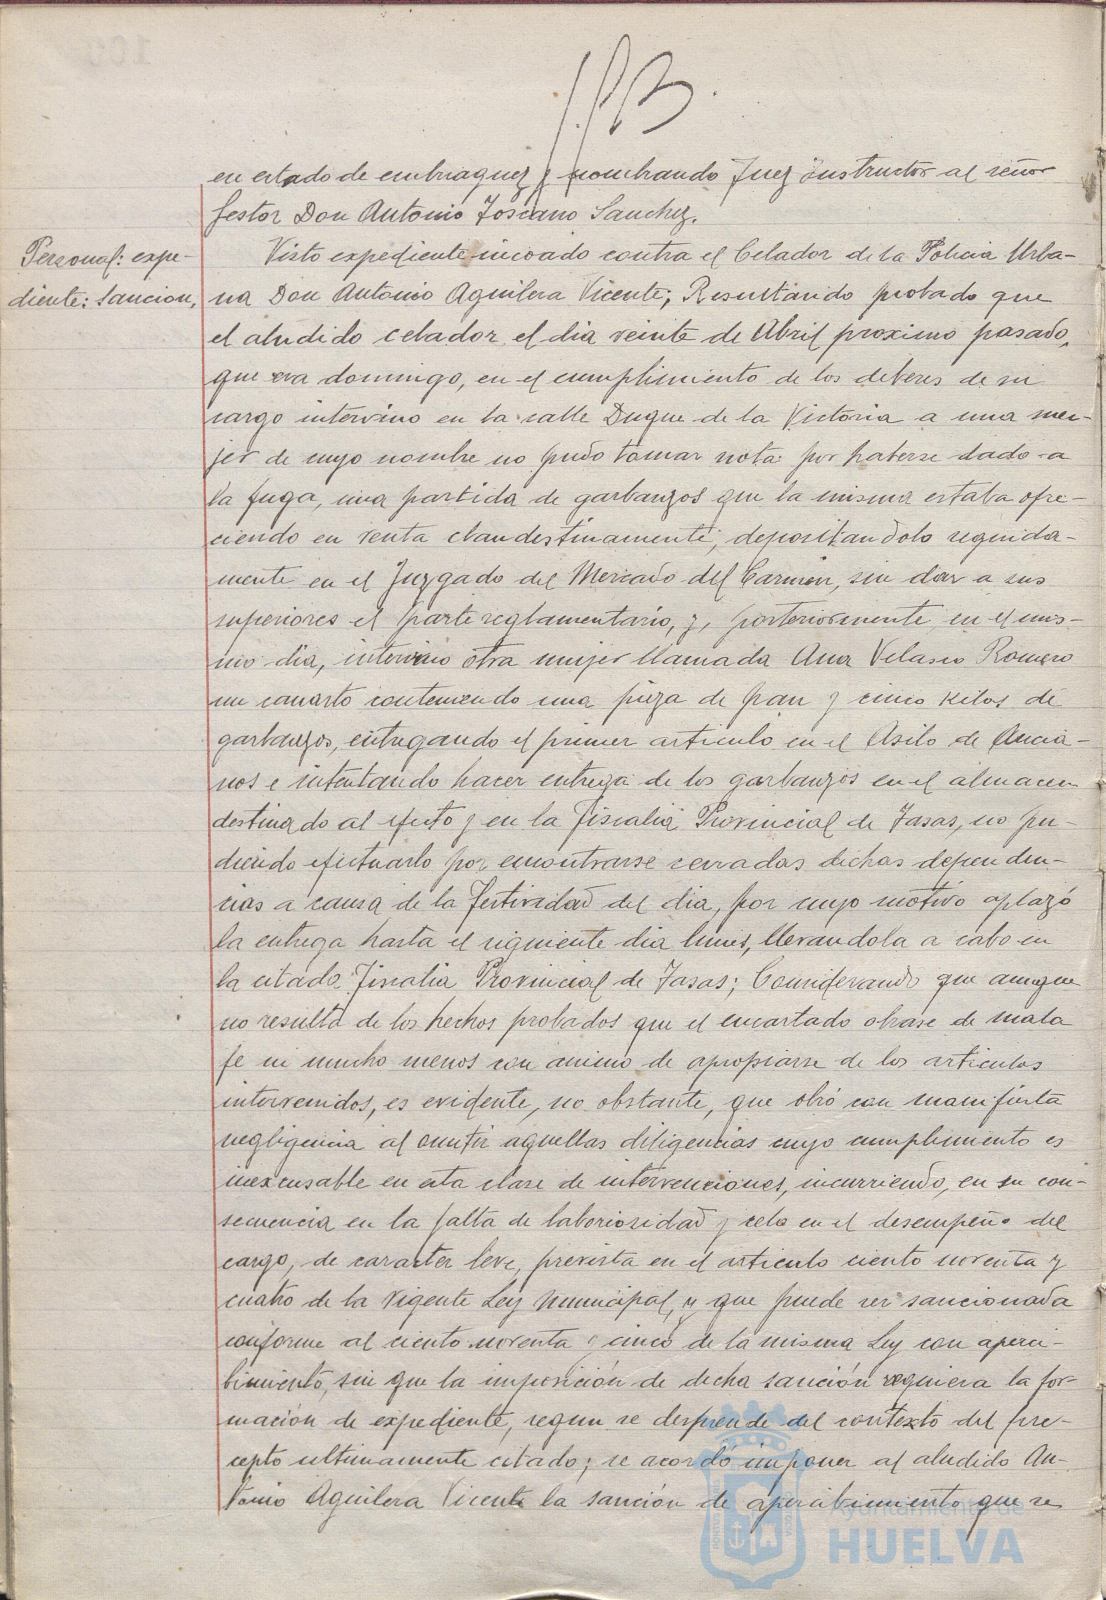 en estado de embriaguez y nombrando Juez instructor al señor
Gestor Don Antonio Toscano Sanchez.
Personal: expe-
diente: Sancion,
Visto expediente incoado contra el Celador de la Policia Urba-
na Don Antonio Aguilera Vicente; Resultando probado que
el aludido celador, el dia veinte de Abril proximo pasado,
que era domingo, en el cumplimiento de los deberes de su
cargo intervino en la calle Duque de la Victoria a una mu-
jer de cuyo nombre no pudo tomar nota por haberse dado a
la fuga, una partida de garbanzos que la misma estaba ofre-
ciendo en venta clandestinamente, depositandola seguida-
mente en el Juzgado del Mercado del Carmen, sin dar a sus
superiores el parte reglamentario, y, posteriormente en el mis-
mo dia, intervino otra mujer llamada Ana Velasco Romero
un canasto conteniendo una pieza de pan y cinco kilos de
garbanzos, entregando el primer articulo en el Asilo de Ancia-
nos e intentando hacer entrega de los garbanzos en el almacen
destinado al efecto y en la Fiscalia Provincial de Tasas, no pu-
diendo efectuarlo por encontrarse cerradas dichas dependen-
cias a causa de la festividad del dia, por cuyo motivo aplazó
la entrega hasta el siguiente dia lunes, llevandola a cabo en
la citada Fiscalia Provincial de Tasas; Considerando que aunque
no resulta de los hechos probados que el encartado obrase de mala
fe ni mucho menos con animo de apropiarse de los articulos
intervenidos, es evidente, no obstante, que obró con manifiesta
negligencia al omitir aquellas diligencias cuyo cumplimiento es
inexcusable en esta clase de intervenciones, incurriendo, en su con-
secuencia en la falta de laboriosidad y celo en el desempeño del
cargo, de caracter leve, prevista en el articulo ciento noventa y
cuatro de la vigente Ley Municipal, y que puede ser sancionada
conforme al ciento noventa y cinco de la misma Ley con aperci-
bimiento, sin que la imposición de dicha sanción requiera la for-
mación de expediente, segun se desprende del contexto del pre-
cepto ultimamente citado; se acordó imponer al aludido An-
tonio Aguilera Vicente la sanción de apercibimiento que se
Ayuntamiento de
HUELVA